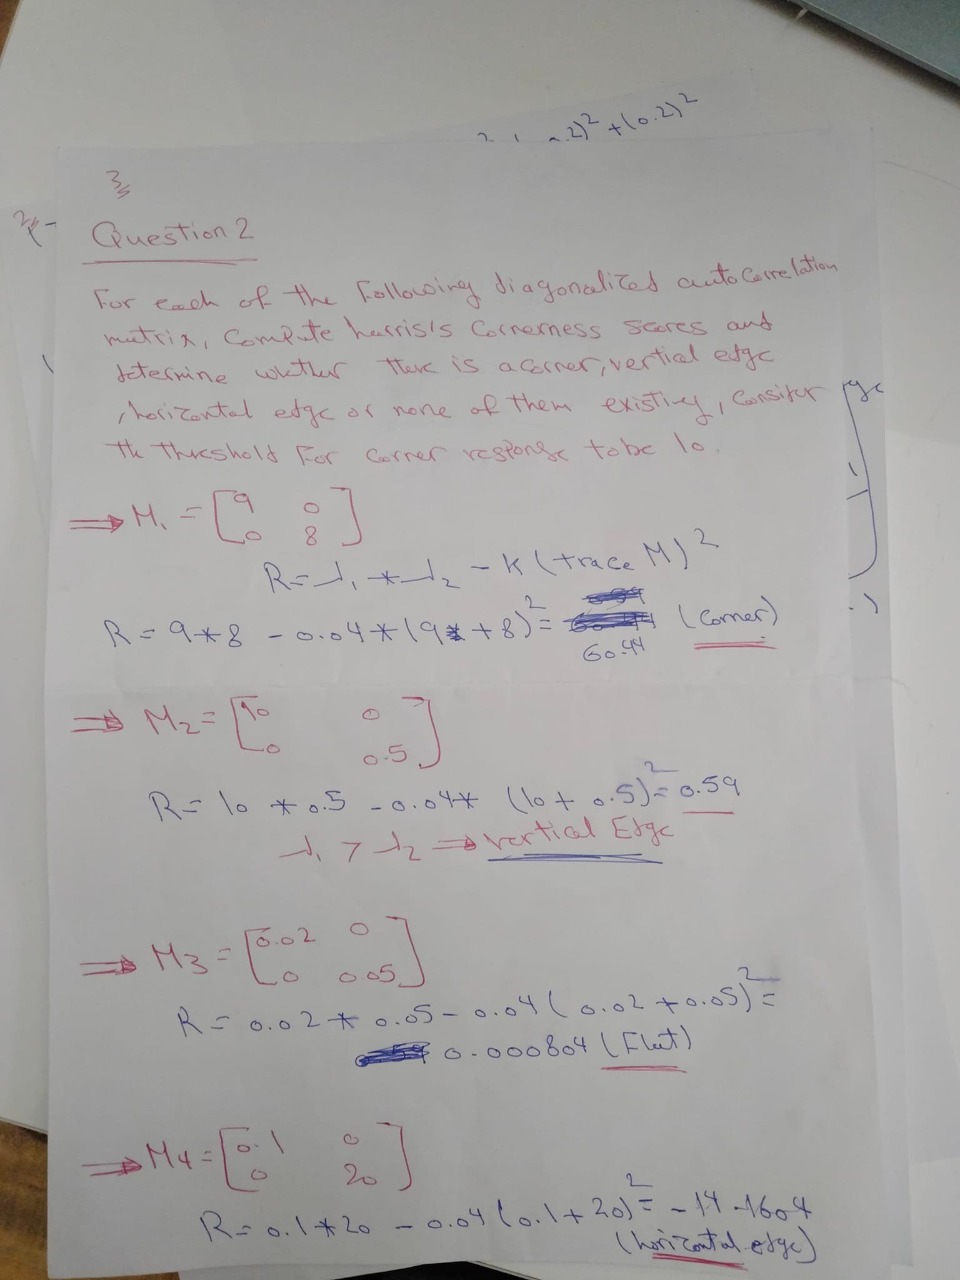 )² + (0.2)²
3
Question 2
For each of the following diagonalized autocorrelation
matrix, compute harris's cornerness scores and
determine whether there is a corner, vertical edge
, horizontal edge or none of them existing, consider
the threshold for corner response to be 10.
⇒ M₁ = [9 0
0 8]
R = λ₁ * λ₂ - K (trace M)²
R = 9 * 8 - 0.04 * (9 + 8)² = (Corner)
60.44
⇒ M₂ = [10 0
0 0.5]
R = 10 * 0.5 - 0.04 * (10 + 0.5)² = 0.59
λ₁ > λ₂ ⇒ vertical Edge
⇒ M3 = [0.02 0
0 0.05]
R = 0.02 * 0.05 - 0.04 ( 0.02 + 0.05)² =
0.000804 (Flat)
⇒ M4 = [0.1 0
0 20]
R = 0.1 * 20 - 0.04 (0.1 + 20)² = -14.1604
(horizontal edge)